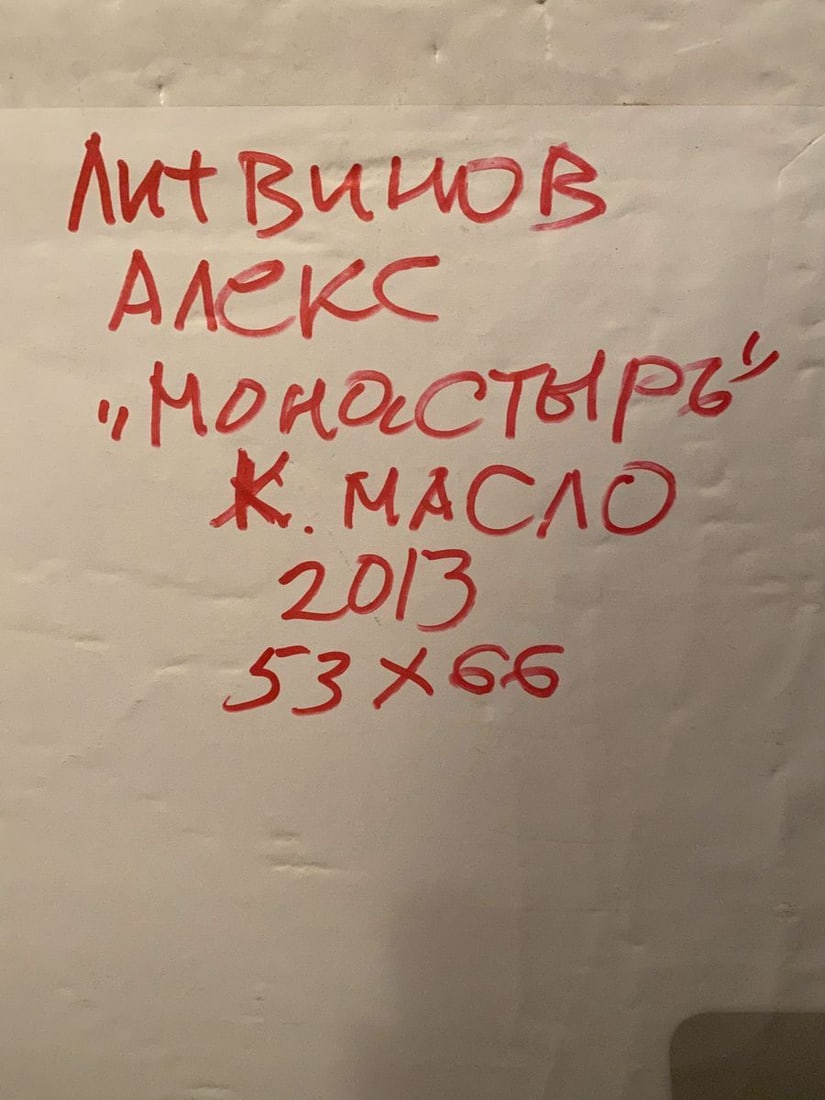 Литвинов
Алекс
"Монастырь"
К. масло
2013
53 x 66